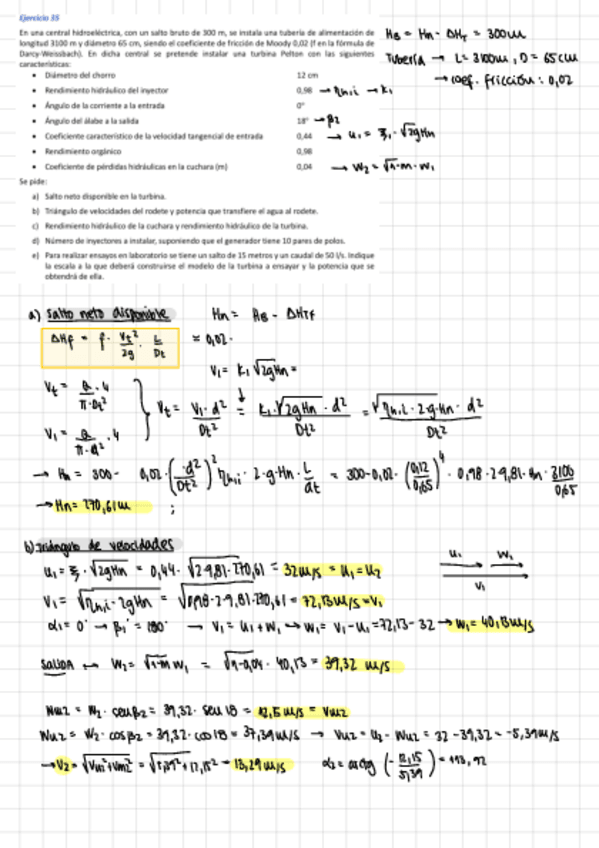 Ejercicio 35
En una central hidroeléctrica, con un salto bruto de 300 m, se instala una tubería de alimentación de
longitud 3100 m y diámetro 65 cm, siendo el coeficiente de fricción de Moody 0,02 (f en la fórmula de
Darcy-Weissbach). En dicha central se pretende instalar una turbina Pelton con las siguientes
características:
• Diámetro del chorro 12 cm
• Rendimiento hidráulico del inyector 0,98 → ηh,i → k₁
• Ángulo de la corriente a la entrada 0°
• Ángulo del álabe a la salida 18° → β2
• Coeficiente característico de la velocidad tangencial de entrada 0,44 → u₁ = ξ₁·√2gHn
• Rendimiento orgánico 0,98
• Coeficiente de pérdidas hidráulicas en la cuchara (m) 0,04 → W₂ = √1-m · W₁
HB = Hn - ΔHT = 300m
Tubería → L = 3100m, D = 65cm
→ coef. fricción: 0,02
Se pide:
a) Salto neto disponible en la turbina.
b) Triángulo de velocidades del rodete y potencia que transfiere el agua al rodete.
c) Rendimiento hidráulico de la cuchara y rendimiento hidráulico de la turbina.
d) Número de inyectores a instalar, suponiendo que el generador tiene 10 pares de polos.
e) Para realizar ensayos en laboratorio se tiene un salto de 15 metros y un caudal de 50 l/s. Indique
la escala a la que deberá construirse el modelo de la turbina a ensayar y la potencia que se
obtendrá de ella.
a) Salto neto disponible Hn = HB - ΔHTf
ΔHf = f · Vt²/2g · L/Dt = 0,02·
V₁ = k₁√2gHn =
Vt = Q·4/π·Dt²
V₁ = Q/π·d² · 4
Vt = V₁·d²/Dt² = k₁·√2gHn · d²/Dt² = √ηh,i · 2·g·Hn · d²/Dt²
→ Hn = 300 - 0,02·(d²/Dt²)² ηh,i · 2·g·Hn · L/dt = 300-0,02·(0,12/0,65)⁴ · 0,98·2·9,81·Hn · 3100/0,65
→ Hn = 270,61m ;
b) Triángulo de velocidades
u₁ = ξ · √2gHn = 0,44 · √2·9,81·270,61 = 32m/s = u₁ = u₂
V₁ = √ηh,i · 2gHn = √0,98·2·9,81·270,61 = 72,13m/s = V₁
α₁ = 0° → β₁ = 180° → V₁ = u₁ + W₁ → W₁ = V₁ - u₁ = 72,13 - 32 → W₁ = 40,13m/s
u₁ W₁
V₁
SALIDA ↔ W₂ = √1-m W₁ = √1-0,04 · 40,13 = 39,32 m/s
Wm2 = W₂ · senβ2 = 39,32 · sen 18 = 12,15 m/s = Vm2
Wu2 = W₂ · cosβ2 = 39,32 · cos 18 = 37,39 m/s → Vu2 = u₂ - Wu2 = 32 - 39,32 = -5,39m/s
→ V₂ = √Vu2² + Vm2² = √5,39² + 12,15² = 13,29 m/s α₂ = arctg (- 12,15/5,39) = 113,92